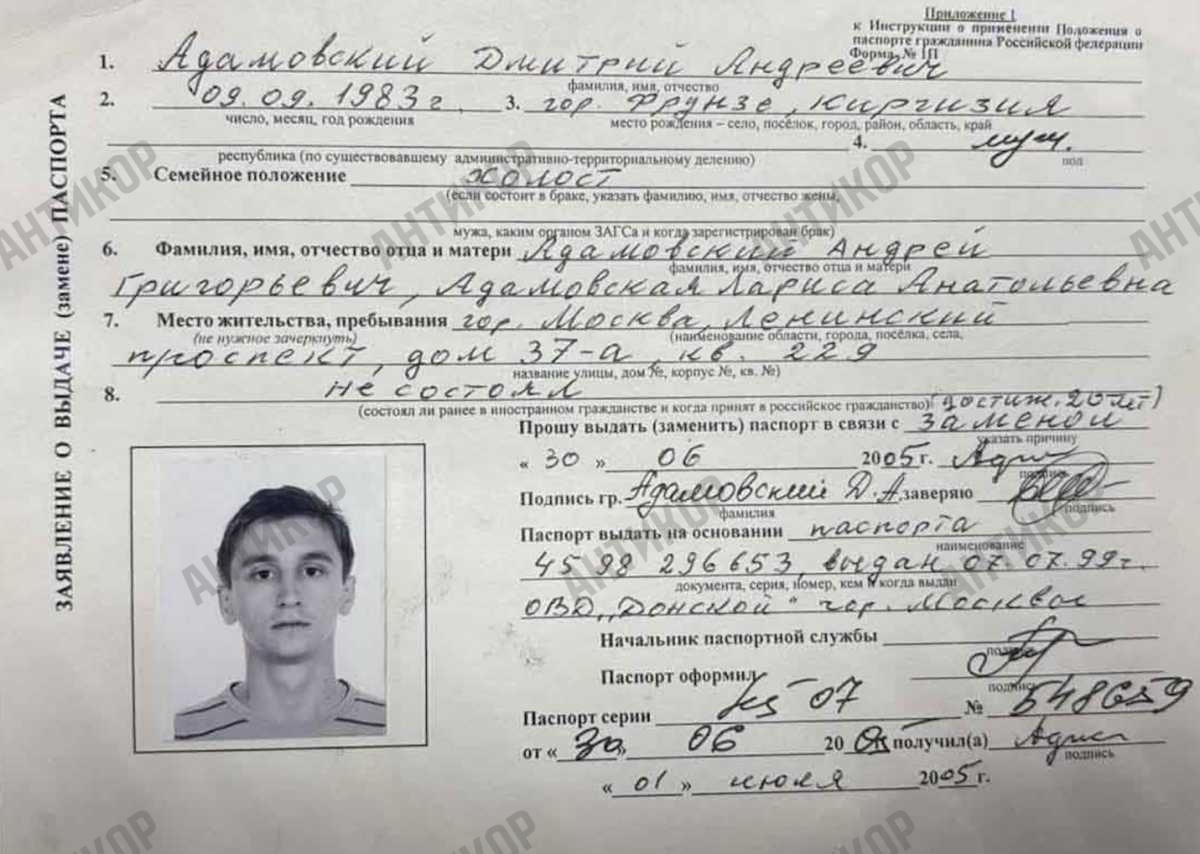 Приложение 1
к Инструкции о применении Положения о
паспорте гражданина Российской федерации
Форма № 1П
ЗАЯВЛЕНИЕ О ВЫДАЧЕ (замене) ПАСПОРТА
1. Адамовский Дмитрий Андреевич
фамилия, имя, отчество
2. 09.09.1983 г. 3. гор. Фрунзе, Киргизия
число, месяц, год рождения место рождения – село, посёлок, город, район, область, край
4. муж.
республика (по существовавшему административно-территориальному делению) пол
5. Семейное положение холост
(если состоит в браке, указать фамилию, имя, отчество жены,
мужа, каким органом ЗАГСа и когда зарегистрирован брак)
6. Фамилия, имя, отчество отца и матери Адамовский Андрей
фамилия, имя, отчество отца и матери
Григорьевич, Адамовская Лариса Анатольевна
7. Место жительства, пребывания гор. Москва, Ленинский
(не нужное зачеркнуть) (наименование области, города, посёлка, села,
проспект, дом 37-а, кв. 229
название улицы, дом №, корпус №, кв. №)
8. не состоял
(состоял ли ранее в иностранном гражданстве и когда принят в российское гражданство) (достиж. 20 лет)
Прошу выдать (заменить) паспорт в связи с заменой
указать причину
« 30 » 06 2005 г.
подпись
Подпись гр. Адамовский Д.А. заверяю
фамилия подпись
Паспорт выдать на основании паспорта
наименование
45 98 296653, выдан 07.07.99г.
документа, серия, номер, кем и когда выдан
ОВД „Донской" гор. Москвы
Начальник паспортной службы
подпись
Паспорт оформил
подпись
Паспорт серии 45 07 № 548659
от « 30 » 06 20 05 получил(а)
подпись
« 01 » июля 2005 г.
АНТИКОР
АНТИКОР
АНТИКОР
АНТИКОР
АНТИКОР
АНТИКОР
АНТИКОР
АНТИКОР
АНТИКОР
АНТИКОР